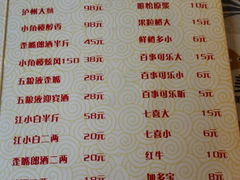 泸州大曲 98元
小角楼醇香 98元
歪嘴郎酒半斤 45元
小角楼炫风150 38元
五粮液歪嘴 28元
五粮液迎宾酒 28元
江小白半斤 58元
江小白二两 20元
歪嘴郎酒二两 20元
18元
唯怡原浆 10元
果粒橙大 15元
鲜橙多小 6元
百事可乐大 15元
百事可乐小 6元
百事可乐听 5元
七喜大 15元
七喜小 6元
红牛 10元
加多宝 8元